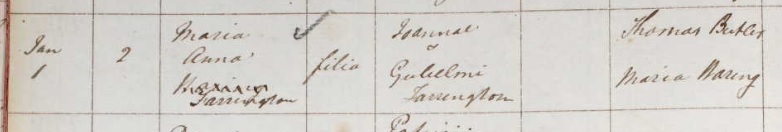 Jan
1
2
Maria
Anna
Tarrington
filia
Joannae
&
Gulielmi
Tarrington
Thomas Butler
Maria Waring
Patricii